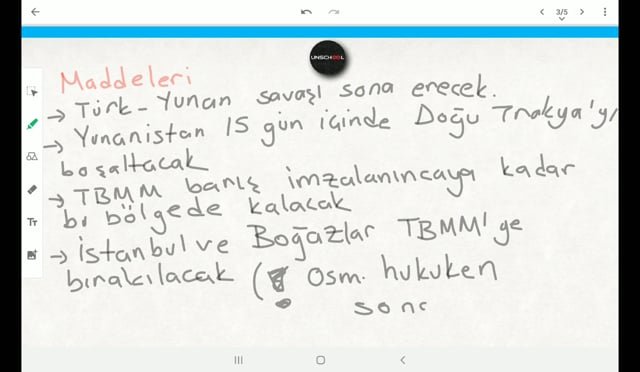 3/5
UNSCHOOL
Maddeleri
→ Türk-Yunan savaşı sona erecek.
→ Yunanistan 15 gün içinde Doğu Trakya'yı
boşaltacak
→ TBMM barış imzalanıncaya kadar
bı bölgede kalacak
→ İstanbul ve Boğazlar TBMM'ye
bırakılacak ( Osm. hukuken
sonc
Tт